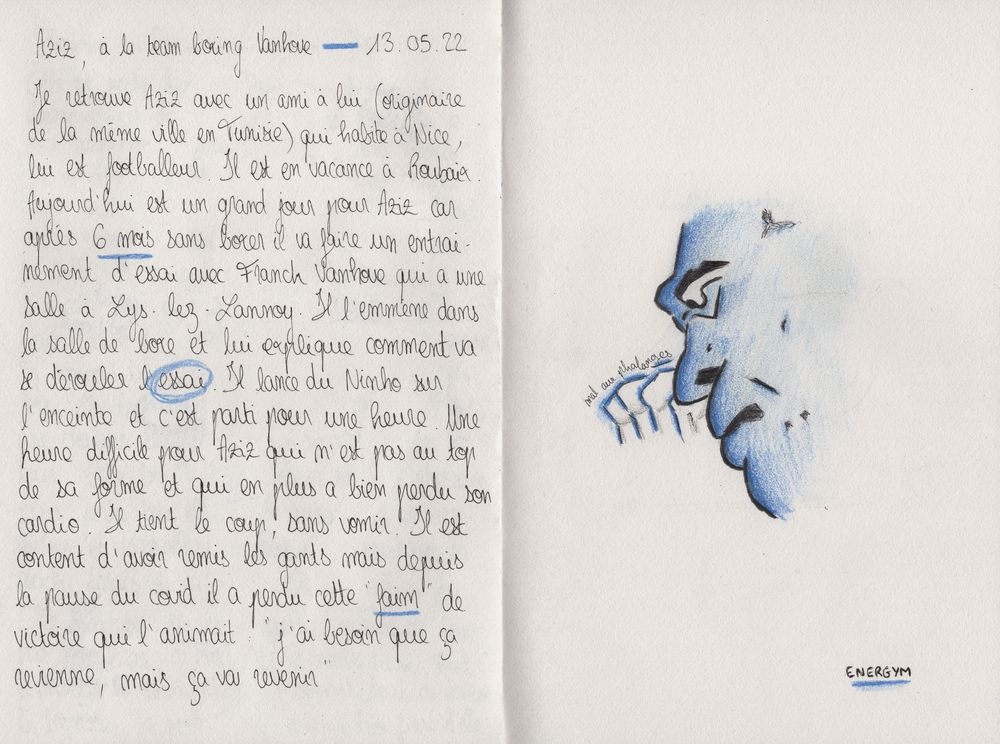 Aziz, à la team boxing Vanhove — 13.05.22
Je retrouve Aziz avec un ami à lui (originaire
de la même ville en Tunisie) qui habite à Nice,
lui est footballeur. Il est en vacance à Roubaix.
Aujourd'hui est un grand jour pour Aziz car
après 6 mois sans boxer il va faire un entrai-
nement d'essai avec Franck Vanhove qui a une
salle à Lys-lez-Lannoy. Il l'emmène dans
la salle de boxe et lui explique comment va
se dérouler l'essai. Il lance du Ninho sur
l'enceinte et c'est parti pour une heure. Une
heure difficile pour Aziz qui n'est pas au top
de sa forme et qui en plus a bien perdu son
cardio. Il tient le coup, sans vomir! Il est
content d'avoir remis les gants mais depuis
la pause du covid il a perdu cette "faim" de
victoire qui l'animait : "j'ai besoin que ça
revienne, mais ça va revenir"
mal aux phalanges
ENERGYM